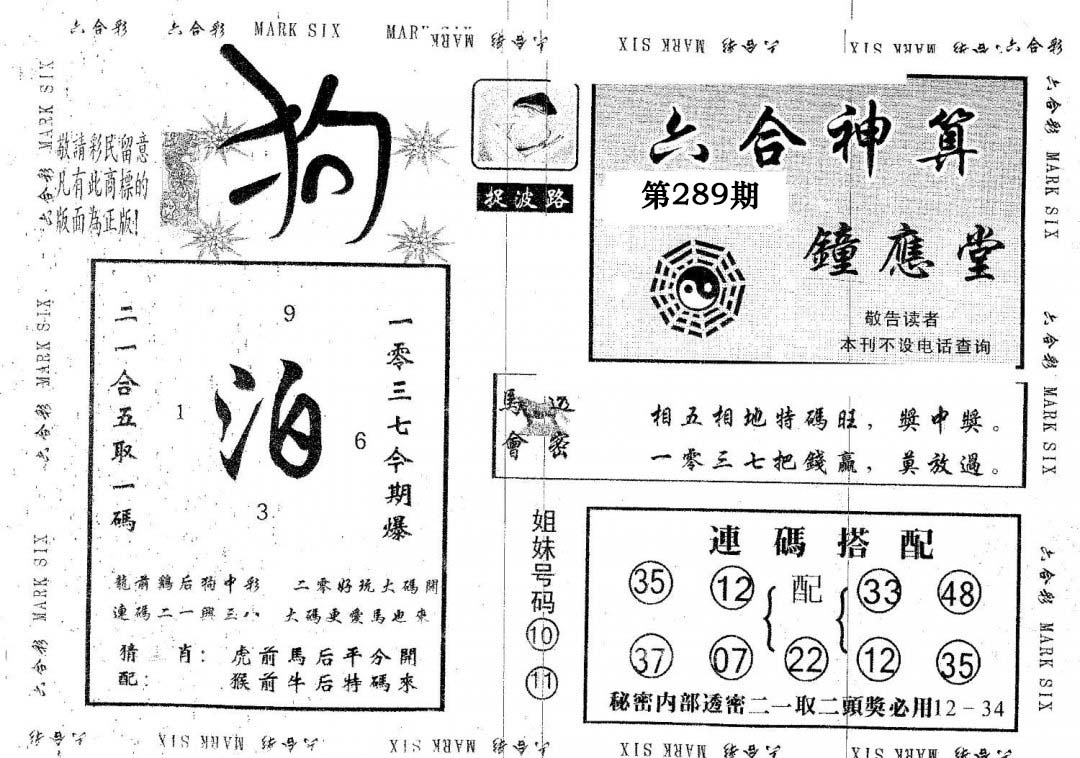 六合彩 六合彩 MARK SIX MAR
MARK 六合彩
SIX MARK 六合彩
SIX MARK 六合彩 六合彩
六合彩 MARK SIX
六合彩 MARK SIX
六合彩 MARK SIX
敬請彩民留意
凡有此商標的
版面為正版!
狗
捉波路
六合神算
第289期
鐘應堂
敬告读者
本刊不设电话查询
二一合五取一碼
9
1
泊
6
3
一零三七今期爆
龍前鷄后狗中彩 二零好玩大碼開
連碼二一興三八 大碼更愛馬也來
猜肖: 虎前馬后平分開
配: 猴前牛后特碼來
馬會
透密
相五相地特碼旺,獎中獎。
一零三七把錢贏,莫放過。
姐妹号码
10
11
連碼搭配
35 12 配 33 48
37 07 22 12 35
秘密内部透密二一取二頭獎必用12-34
六合彩 MARK SIX
六合彩 MARK SIX
六合彩 MARK SIX
六合彩 SIX MARK 六合彩 SIX MARK 六合彩
SIX MARK 六合彩 SIX MARK 六合彩